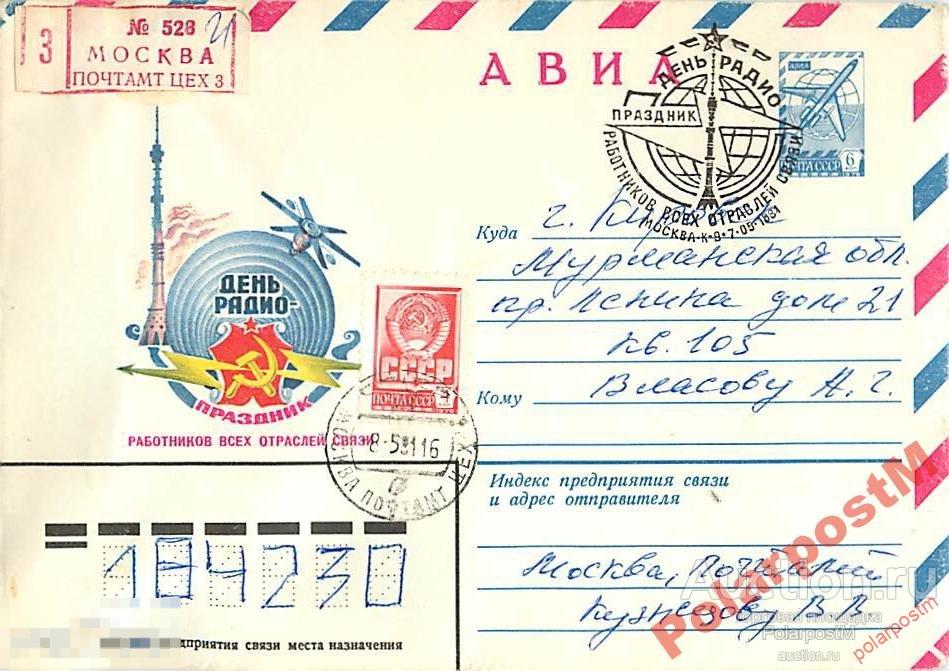 № 528
3 МОСКВА
ПОЧТАМТ ЦЕХ 3
АВИА
ДЕНЬ РАДИО
ПРАЗДНИК
РАБОТНИКОВ ВСЕХ ОТРАСЛЕЙ СВЯЗИ
МОСКВА-К-9-7-05-1981
АВИА
ПОЧТА СССР
6
1978
ДЕНЬ
РАДИО-
ПРАЗДНИК
РАБОТНИКОВ ВСЕХ ОТРАСЛЕЙ СВЯЗИ
СССР
ПОЧТА СССР
1976
МОСКВА ПОЧТАМТ ЦЕХ
8-5 81 16
Куда г.
Мурманская обл.
пр. Ленина дом 21
кв. 105
Кому Власову Н. Г.
Индекс предприятия связи
и адрес отправителя
Москва, Почтамт
Кузнецову В. В.
184230
едприятия связи места назначения
PolarpostM
Auction.ru
торговая площадка
PolarpostM
auction.ru
polarpostm